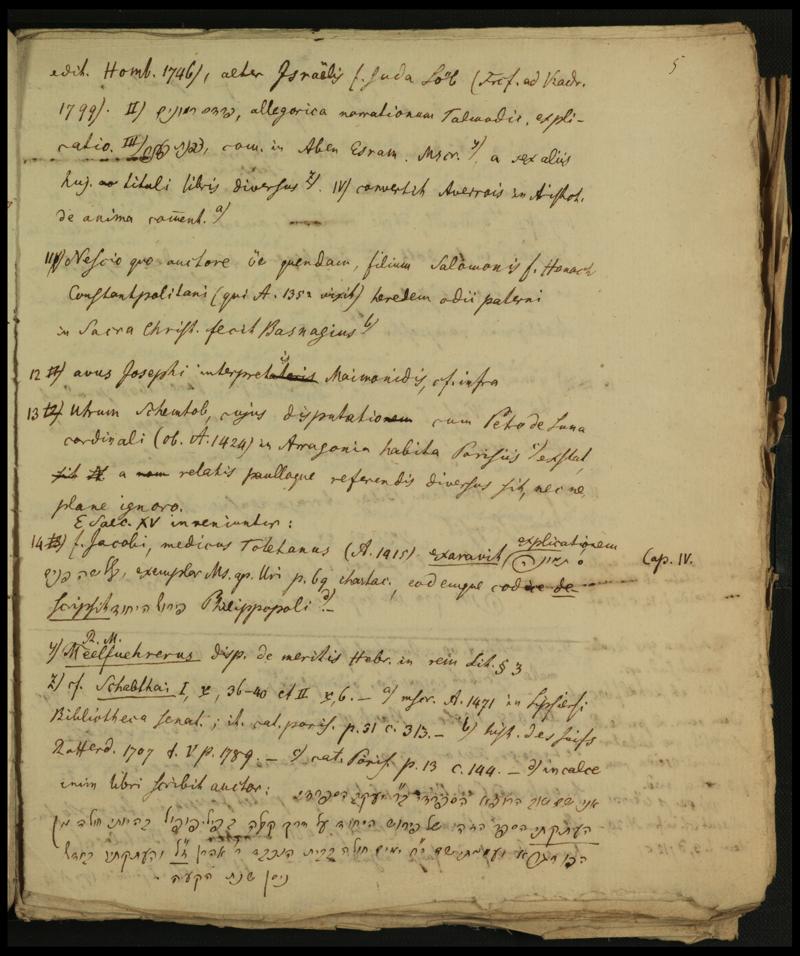 5
edit. Homb. 1746), alter Israëlis f. Juda Löb (Frcf. ad Viadr.
1799). II) פרדס רמונים, allegorica narrationum Talmudic. expli-
catio. III) com. in Aben Esram. Mscr. y) a rex aliis
huj. tituli libris diversus z). IV) convertit Averrois in Aristot.
de anima coment. a)
11) Nescio quo auctore quendam, filium Salomonis f. Hanoch
Constantpolitani (qui A. 1352 vixit) heredem odii paterni
in Sacra Christ. fecit Basnagius b)
12 avus Josephi interpretis Maimonidis, cf. infra
13 Utrum Schemtob, cujus disputatio cum Petro de Luna
cardinali (ob. A. 1424) in Arragonia habita Parisiis c) exstat,
a relatis paulloque referendis diversus sit, nec ne,
plane ignoro.
E Saec. XV inveniuntur:
14 f. Jacobi, medicus Toletanus (A. 1415). exaravit explicationem Cap. IV.
exemplar Ms. ap. Uri p. 69 chartac., eodemque codice de-
scripsit פירוש היחוד Philippopoli d).–
y) R. M. Meelfuehrerus disp. de meritis Hebr. in rem Lit. § 3
z) cf. Schabthai I, 36–40 et II 6. – a) mscr. A. 1471 in Lipsiensi
Bibliotheca senat.; it. cat. paris. p. 31 c. 313. – b) hist. des Juifs
Rotterd. 1707 t. V p. 1789. – c) cat. Paris. p. 13 c. 144. – d) in calce
enim libri scribit auctor: אני שם טוב הרופא הספרדי בר יעקב
העתקתי הספר הזה של פירוש היחוד
והעתקתיו בחדש
ניסן שנת הקעה